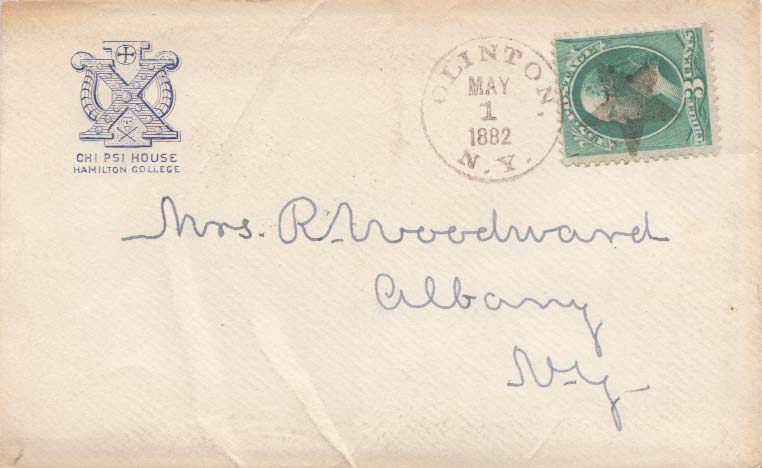 CHI PSI HOUSE
HAMILTON COLLEGE
CLINTON.
MAY
1
1882
N.Y.
U.S. POSTAGE
3
Mrs. R. Woodward
Albany
N.y.